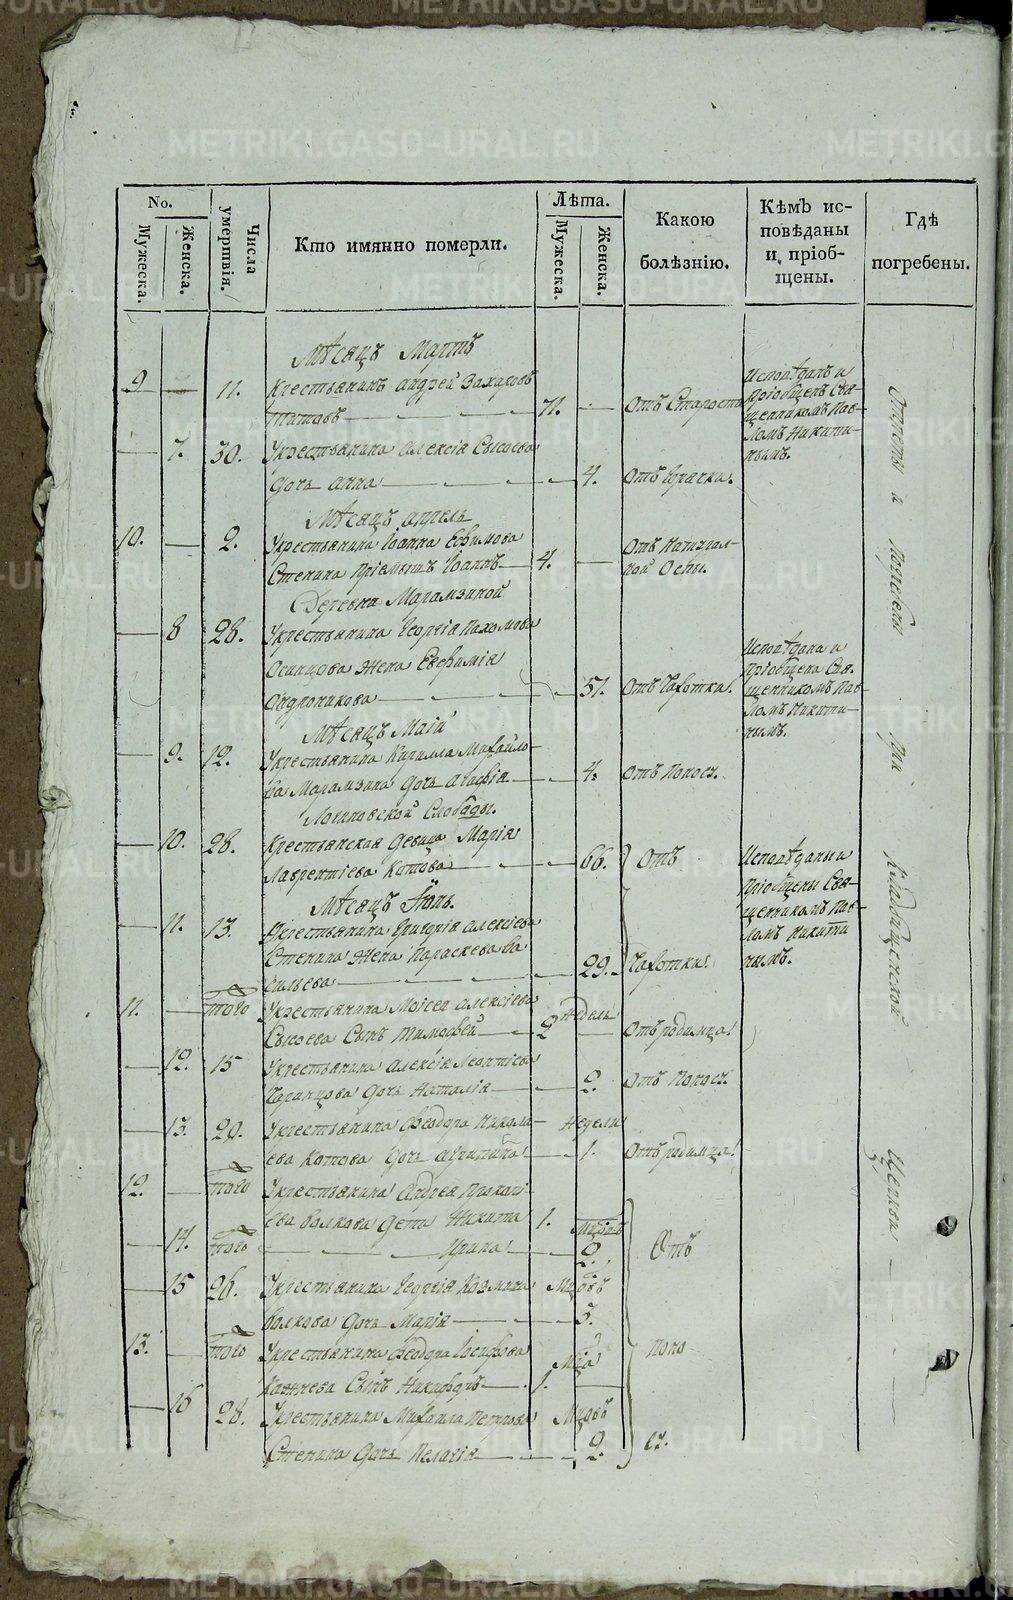 No.
Мужеска.
Женска.
Числа умертвія.
Кто имянно померли.
Лѣта.
Мужеска.
Женска.
Какою болѣзнію.
Кѣмъ исповѣданы и пріобщены.
Гдѣ погребены.
Мѣсяцъ Мартъ
9 — 11. Крестьянинъ Андрей Захаровъ
Титовъ — 71. — Отъ Старости
Исповѣданъ и
Пріобщенъ Свя-
щенникомъ Пав-
ломъ Никити-
нымъ.
— 7. 30. У крестьянина Алексія Сысоева
Дочь Анна — 4. Отъ
Мѣсяцъ Апрель
10. — 2. У крестьянина Іоанна Ефимова
Стенина Пріемышъ Іоаннъ — 4. — Отъ Натурал-
ной Оспы.
Деревни Марамзиной
— 8 28. У крестьянина Георгія Пахомова
Осинцова Жена Евфимія
Андроникова — 57. Отъ Чахотки.
Исповѣдана и
Пріобщена Свя-
щенникомъ Пав-
ломъ Никити-
нымъ.
Мѣсяцъ Маій
— 9. 12. У крестьянина Кирилла Михайло-
ва Марамзина Дочь Агафія — 4. Отъ Поносу.
Логиновской Слободы.
— 10. 28. Крестьянская Девица Марія
Лаврентіева Китова — 66. Отъ
Исповѣданы и
Пріобщены Свя-
щенникомъ Пав-
ломъ Никити
нымъ.
Мѣсяцъ Іюнь.
— 11. 13. У крестьянина Григорія Алексіева
Стенина Жена Параскева Ва
сильева — 29. Чахотки.
11. — того У крестьянина Моісея Алексіева
Сысоева Сынъ Тимофей — 2 недель — Отъ родимца.
— 12. 15 У крестьянина Алексія Леонтіева
Дочь Наталія — 2. Отъ Поносу.
— 13. 20. У крестьянина Феодора Никола-
ева Котова Дочь Акилина — Недели 1. Отъ родимца.
12. — того У крестьянина Андрея Прокопі-
ева Волкова Дети Никита 1.
— 14. того — Ирина — 2. Отъ
— 15 26. У крестьянина Георгія Козмина
Волкова Дочь Марія — 3.
13. — того У крестьянина Феодора Іосифова
Сынъ Никифоръ — 1. поно
— 16 28. У крестьянина Михаила Петрова
Стенина Дочь Пелагія — 2. су.
Отпеты и Погребены При Кладбищенской Церкви
METRIKI.GASO-URAL.RU